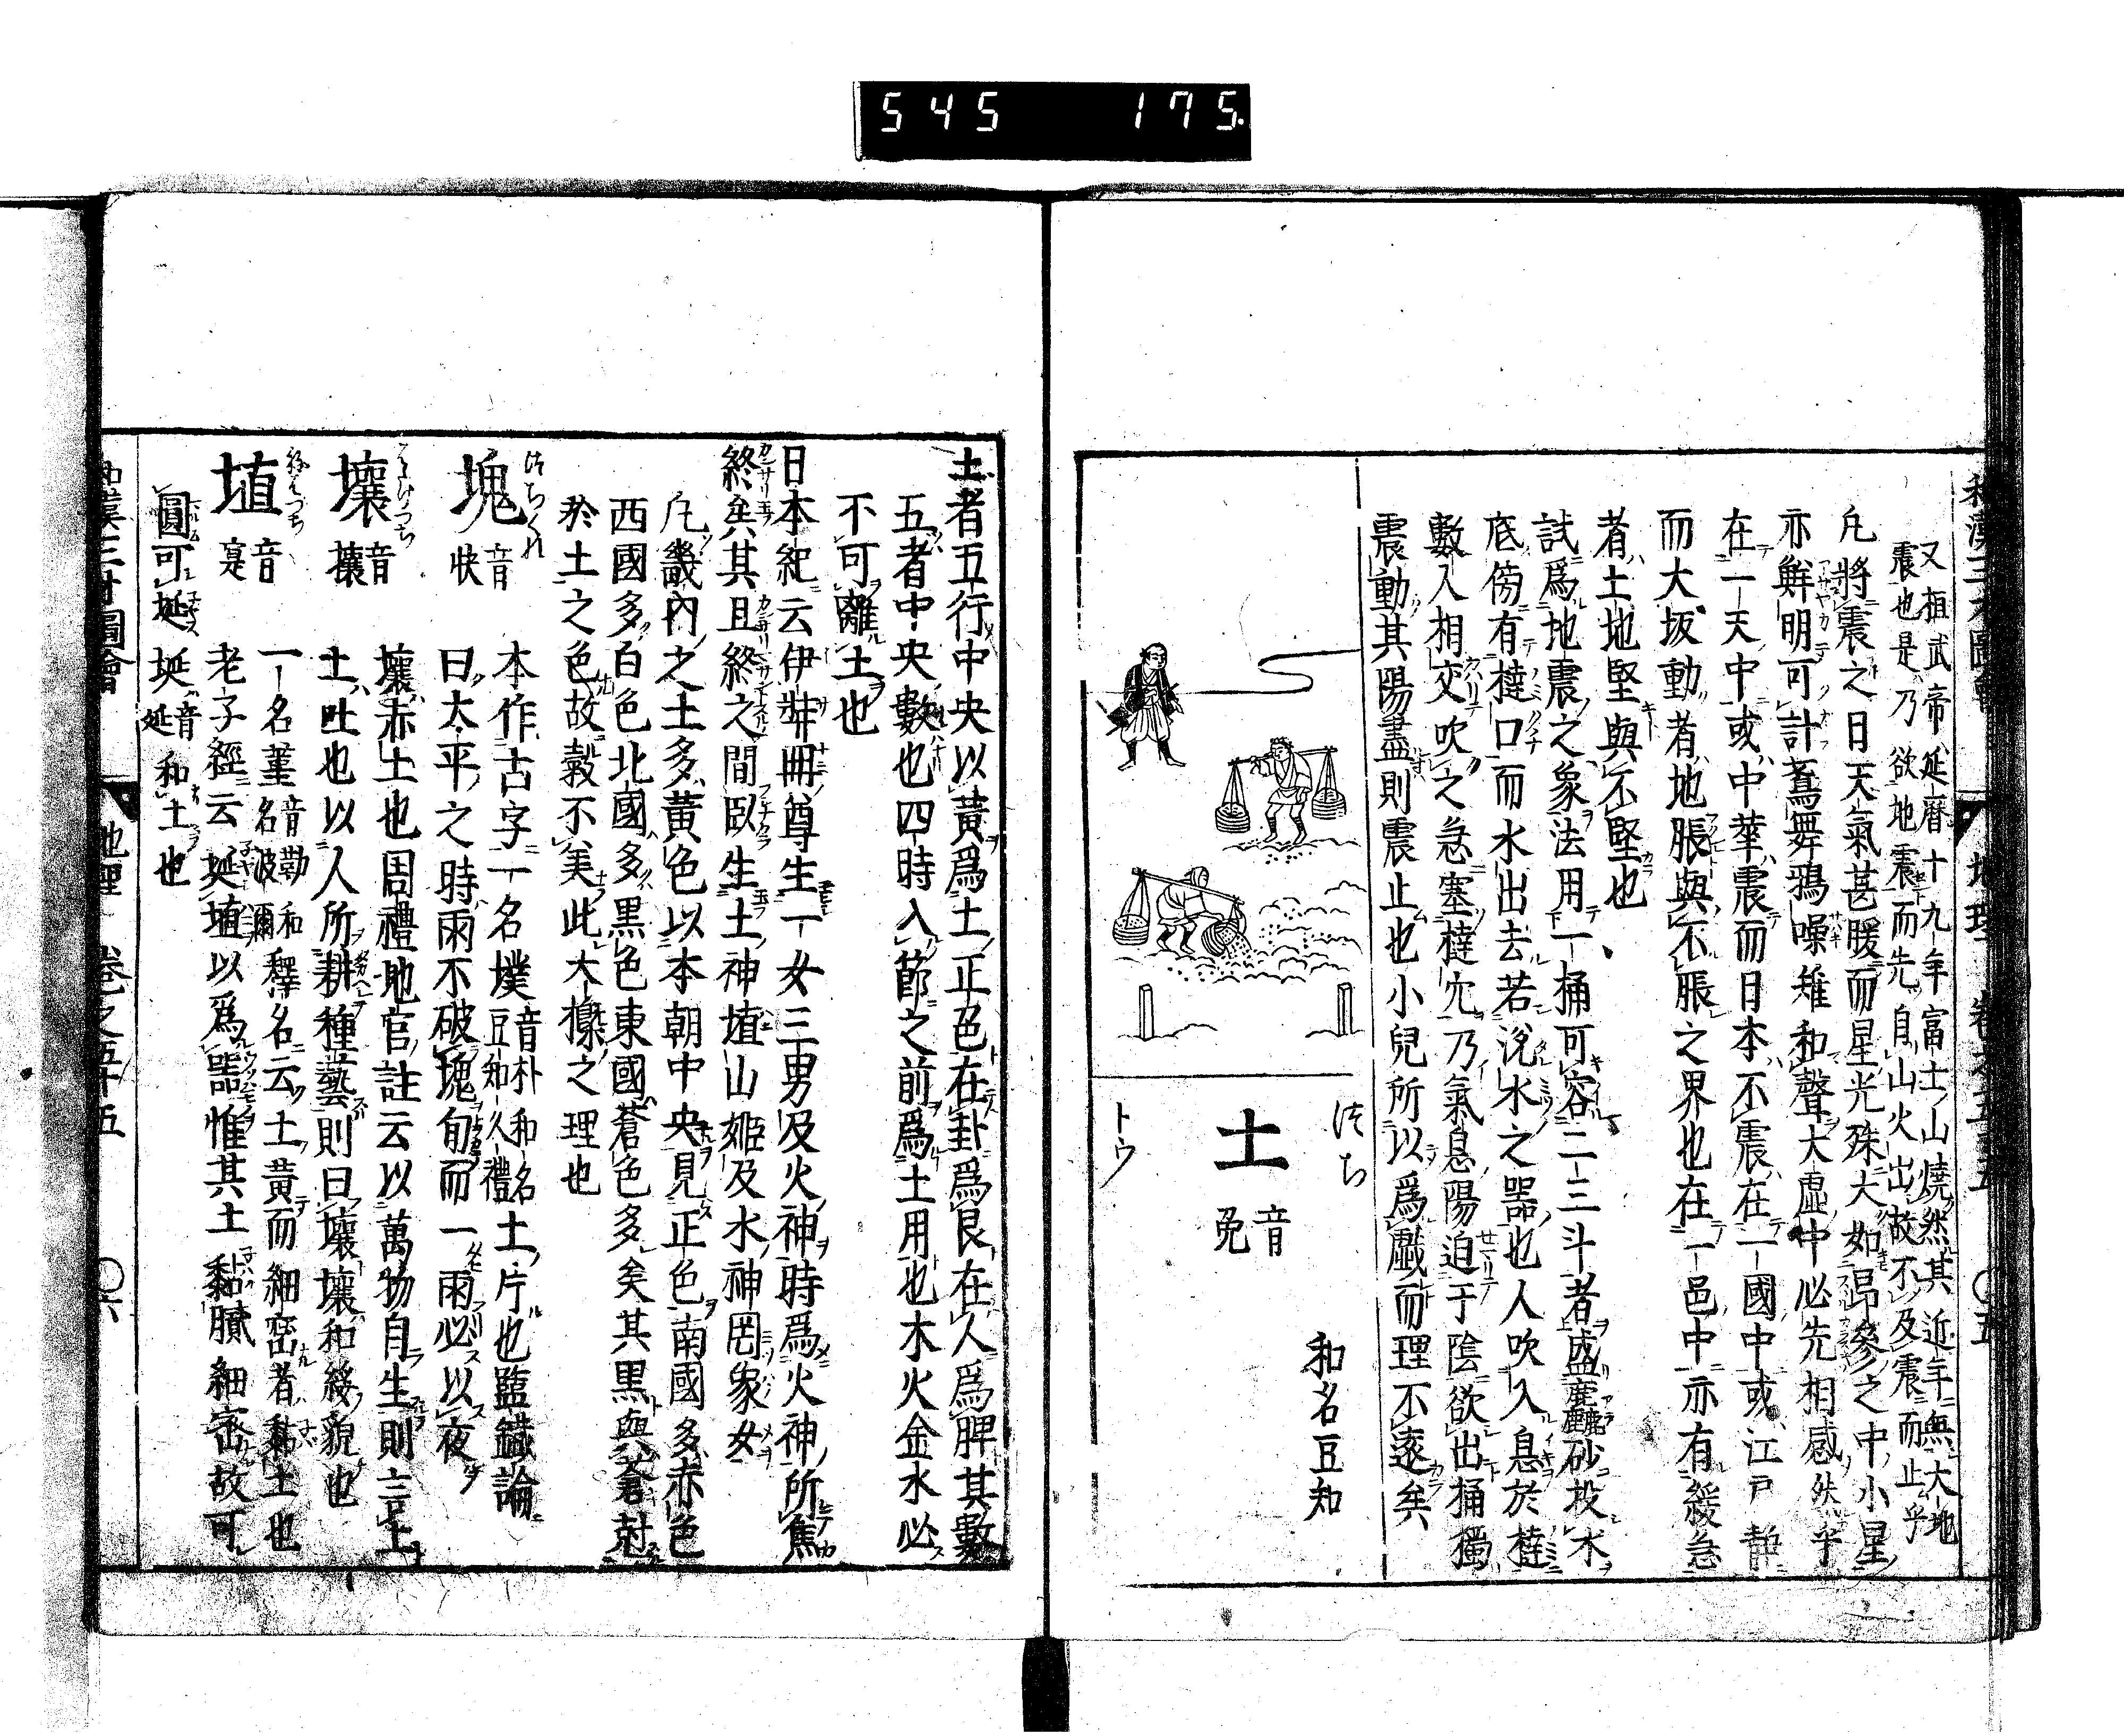 545 175
和漢三才圖會 地理 卷之五十五 〇五
又桓武帝延曆十九年富士山燒然其近年無大地
震也是乃欲地震而先自山火出故不及震而止乎
凡將震之日天氣甚暖而星光殊大如昴參之中小星
亦鮮明可計蔦舞鴉噪雉和聲大虛中必先相感然乎
在一天中或中華震而日本不震在一國中或江戸靜
而大坂動者地脹與不脹之界也在一邑中亦有緩急
者土地堅與不堅也
試爲地震之象法用一桶可容二三斗者盛麤砂投水
底傍有撻口而水出去若涚水之噐也人吹入息於撻
數入相交吹之急塞撻穴乃氣息陽迫于陰欲出桶獨
震動其陽盡則震止也小兒所以爲戲而理不遠矣
つち
土 音兎
トウ
和名豆知
土者五行中央以黃爲土正色在卦爲艮在人爲脾其數
五者中央數也四時入節之前爲土用也木火金水必
不可離土也
日本紀云伊弉冊尊生一女三男及火神時爲火神所焦
終矣其且終之間臥生土神埴山姬及水神罔象女
凡畿內之土多黃色以本朝中央見正色南國多赤色
西國多白色北國多黒色東國蒼色多矣其黒與蒼尅
於土之色故穀不美此大㮣之理也
つちくれ
塊 音快
本作古字一名墣音朴和名豆知久禮土片也鹽鐵論
曰太平之時雨不破塊旬而一雨必以夜
壤 音攘
壤赤土也周禮地官註云以萬物自生則言土
土吐也以人所耕種藝則曰壤壤和緩貌也
ねばつち
埴 音寔
一名堇音勤和名波爾釋名云土黃而細密者黏土也
老子經云埏埴以爲噐惟其土黏膩細密故可
圓可埏 埏音延和土也
和漢三才圖會 地理 卷之五十五 〇六